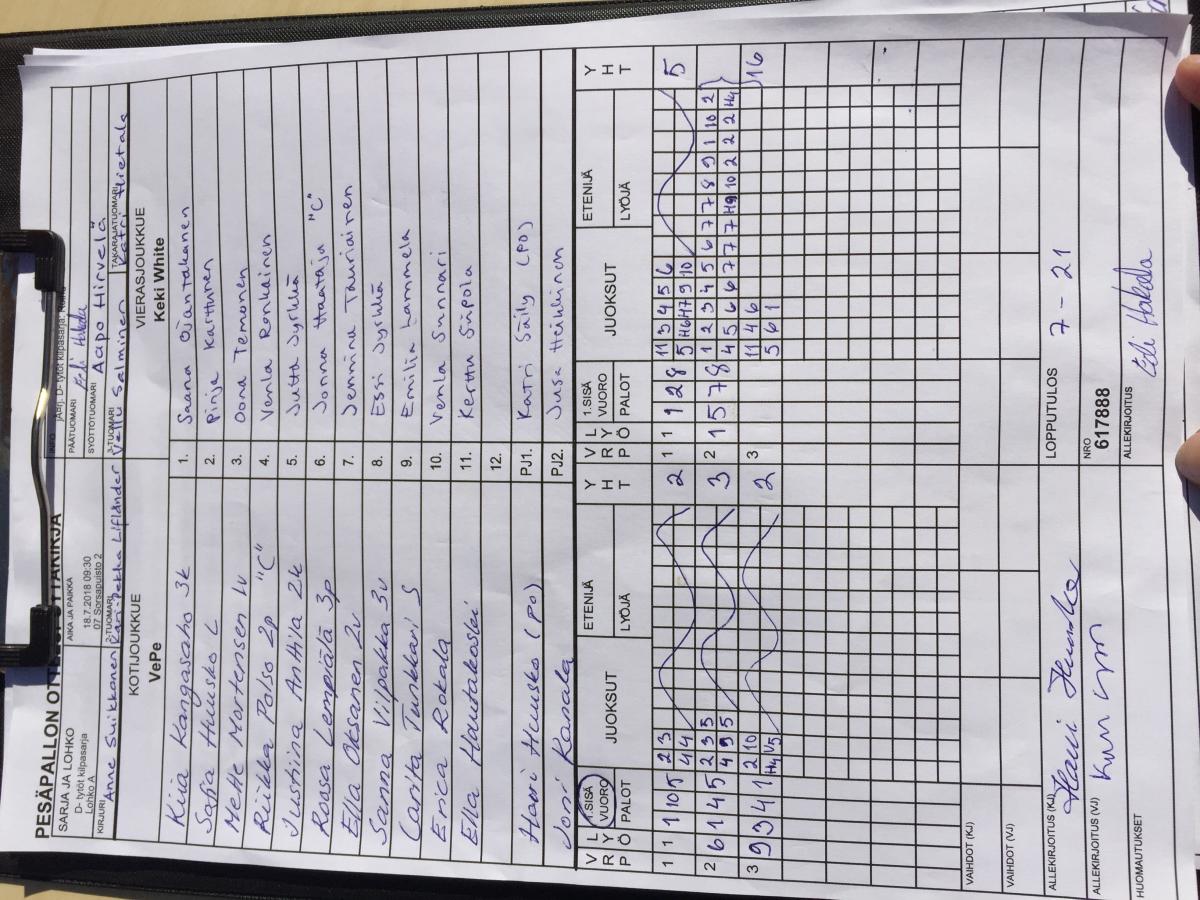 PESÄPALLON OTTELUPÖYTÄKIRJA
SARJA JA LOHKO
D- tytöt kilpasarja
Lohko A
AIKA JA PAIKKA
18.7.2018 09:30
07 Sorsapuisto 2
INFO
PÄÄTUOMARI Eeli Hakala
SYÖTTÖTUOMARI Aapo Hirvelä
KIRJURI Anne Suikkonen
2-TUOMARI Pari-Pekka Lifländer
3-TUOMARI Vellu Salminen
TAKARAJATUOMARI Hietala
KOTIJOUKKUE
VePe
VIERASJOUKKUE
Keki White
Kiia Kangasaho 3k 1. Saana Ojantakanen
Safia Huusko L 2. Pinja Karttunen
Mette Mortensen 1v 3. Oona Temonen
Riikka Polso 2p "C" 4. Venla Ronkainen
Justiina Anttila 2k 5. Jutta Jyrkkä
Roosa Lempiälä 3p 6. Jonna Haataja "C"
Ella Oksanen 2v 7. Jemmina Tauriainen
Sanna Vilpakka 3v 8. Essi Jyrkkä
Carita Tunkkari S 9. Emilia Lammela
Erica Rokala 10. Venla Sunnari
Ella Hautakoski 11. Kerttu Siipola
12.
Harri Huusko (PO) PJ1. Katri Säily (PO)
Joni Ranala PJ2. Jusa Heikkinen
VRP LYÖ 1.SISÄ VUORO PALOT JUOKSUT ETENIJÄ LYÖJÄ YHT VRP LYÖ 1.SISÄ VUORO PALOT JUOKSUT ETENIJÄ LYÖJÄ YHT
1 1 1 10 5 2 3 2 1 1 1 2 8 11 3 4 5 6 5
4 4 5 H6 H7 9 10
2 6 1 4 5 2 3 5 3 2 1 5 7 8 1 2 3 4 5 6 7 7 8 9 1 10 2
4 9 5 4 5 6 6 7 7 7 H9 10 2 2 2 H4
3 9 3 4 1 2 10 2 3 11 4 6 16
H4 V5 5 6 1
VAIHDOT (KJ)
VAIHDOT (VJ)
ALLEKIRJOITUS (KJ) Harri Huusko
LOPPUTULOS 7 - 21
ALLEKIRJOITUS (VJ)
NRO
617888
HUOMAUTUKSET
ALLEKIRJOITUS Eeli Hakala